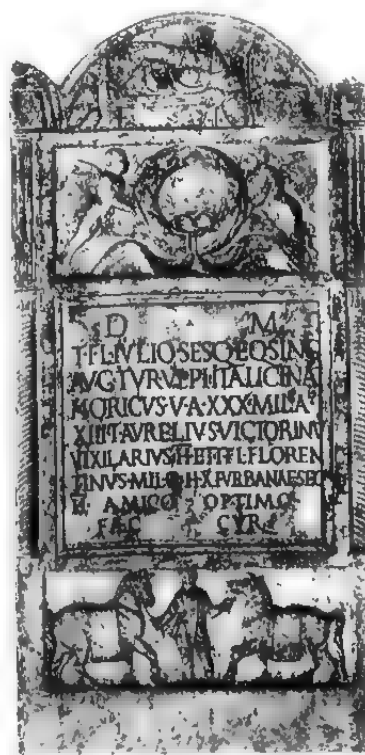 D M
T·FL·IVLIO·SESQ·EQ·SING
AVG·TVR·VLPI·ITALICI·NA
NORICVS·V·A·XXX·MIL·A
XIII T·AVRELIVS VICTORINV
VIXILARIVS·H·ET T FL FLOREN
TINVS·MIL· VRBANAE SEC
H AMICO OPTIMO
FAC CVR